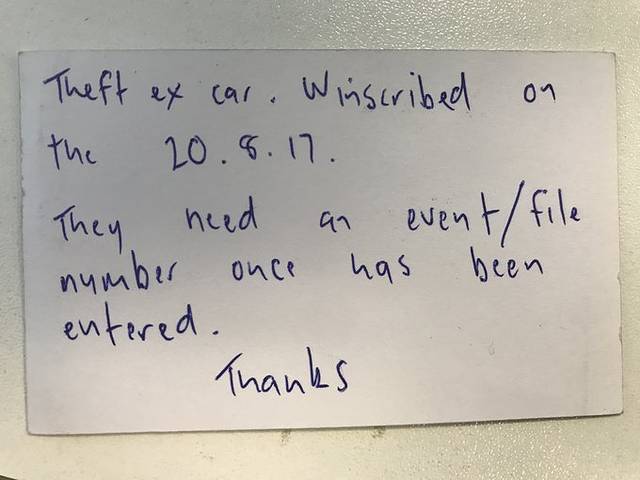 Theft ex car. Winscribed on
the 20.8.17.
They need an event/file
number once has been
entered.
Thanks